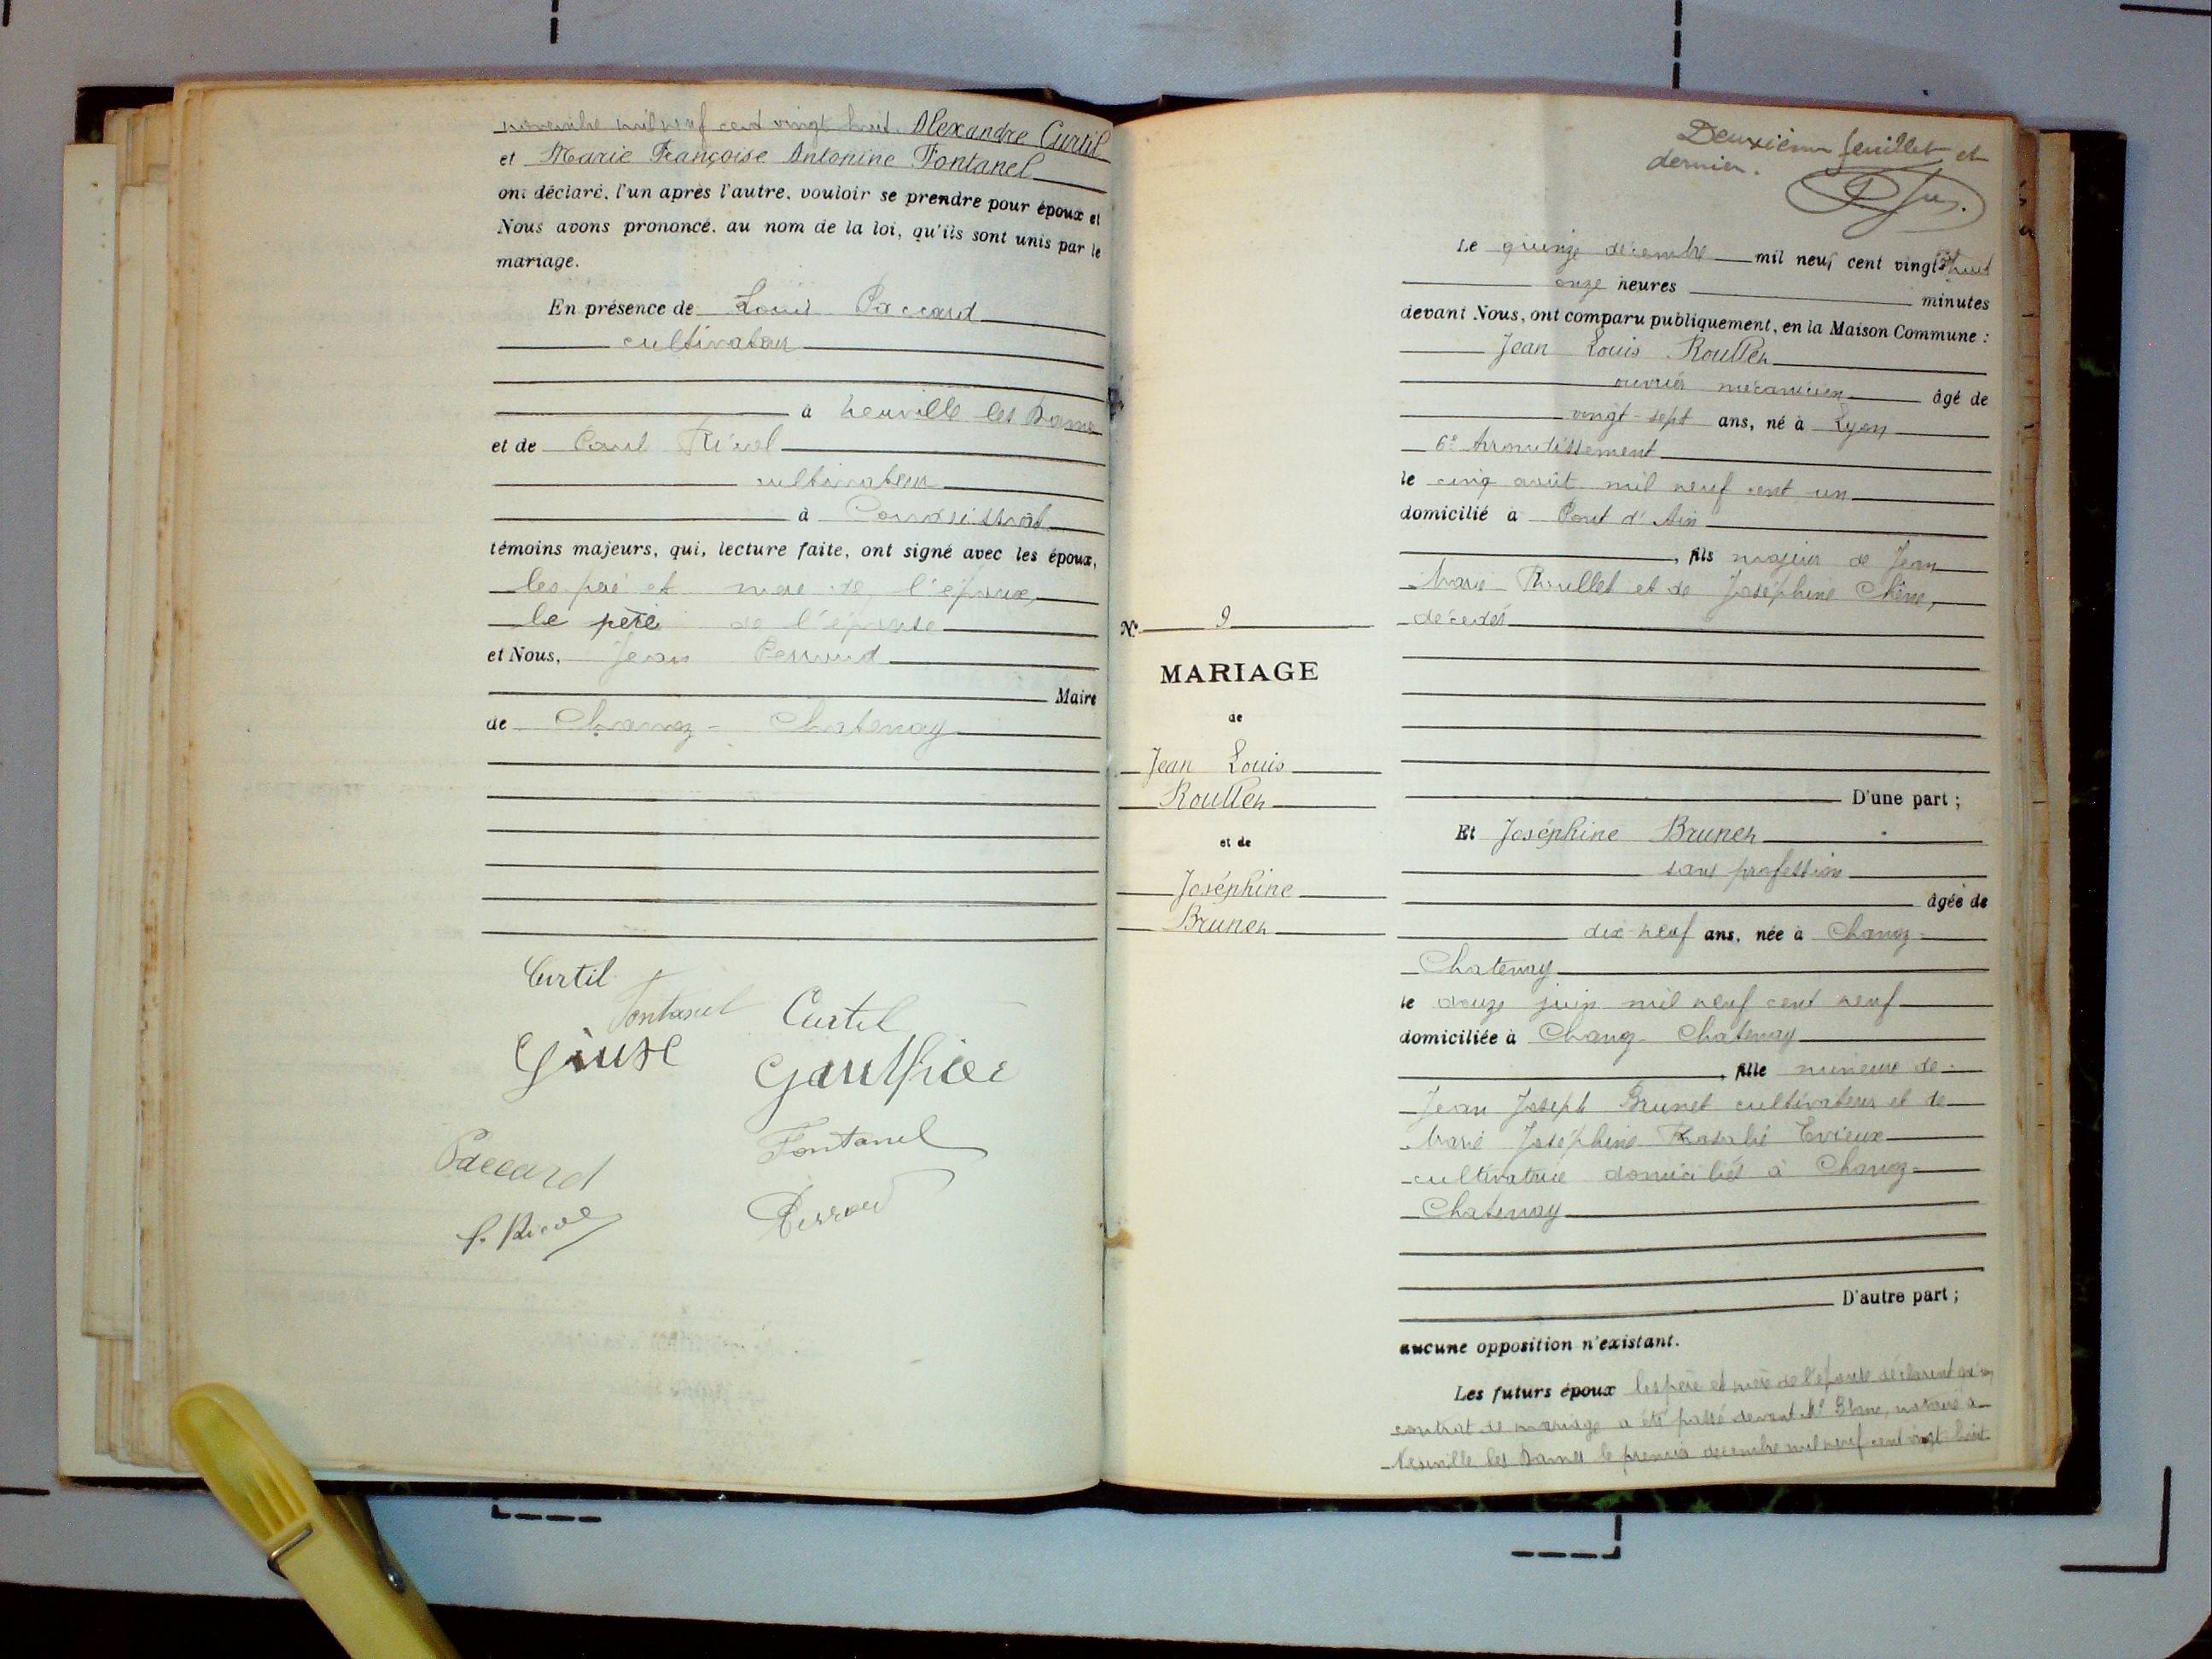 novembre mil neuf cent vingt huit. Alexandre Curtil
et Marie Françoise Antonine Fontanel
ont déclaré, l'un après l'autre, vouloir se prendre pour époux et
Nous avons prononcé, au nom de la loi, qu'ils sont unis par le
mariage.
En présence de Louis Paccard
cultivateur
à Neuville les Dames
et de Paul Rivol
cultivateur
à
témoins majeurs, qui, lecture faite, ont signé avec les époux,
les père et mère de l'époux,
le père de l'épouse
et Nous, Jean Perroud
Maire
de Chanoz-Chatenay
Curtil
Fontanel Curtil
Gauthier
Paccard Fontanel
P. Rivol Perroud
Deuxième feuillet et
dernier.
Le quinze décembre mil neuf cent vingt huit
onze heures minutes
devant Nous, ont comparu publiquement, en la Maison Commune :
Jean Louis Roullet
ouvrier mécanicien âgé de
vingt-sept ans, né à Lyon
6e Arrondissement
le cinq août mil neuf cent un
domicilié à Pont d'Ain
, fils majeur de Jean
Marie Roullet et de Joséphine Chêne,
décédés
N° 9
MARIAGE
de
Jean Louis
Roullet
et de
Joséphine
Brunet
D'une part ;
Et Joséphine Brunet
sans profession
âgée de
dix-neuf ans, née à Chanoz-
Chatenay
le douze juin mil neuf cent neuf
domiciliée à Chanoz-Chatenay
, fille mineure de
Jean Joseph Brunet cultivateur et de
Marie Joséphine Rosalie Evieux
cultivatrice domiciliés à Chanoz-
Chatenay
D'autre part ;
aucune opposition n'existant.
Les futurs époux les père et mère de l'épouse déclarent qu'un
contrat de mariage a été passé devant Me Blanc, notaire à
Neuville les Dames le premier décembre mil neuf cent vingt-huit